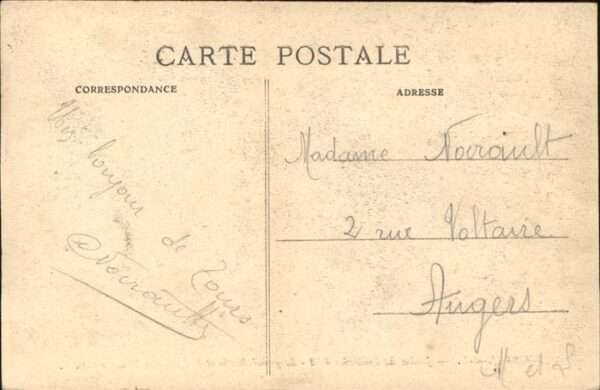 CARTE POSTALE
CORRESPONDANCE
ADRESSE
bonjour
de Tours
Noirault
Madame Noirault
2 rue Voltaire
Angers
M et L